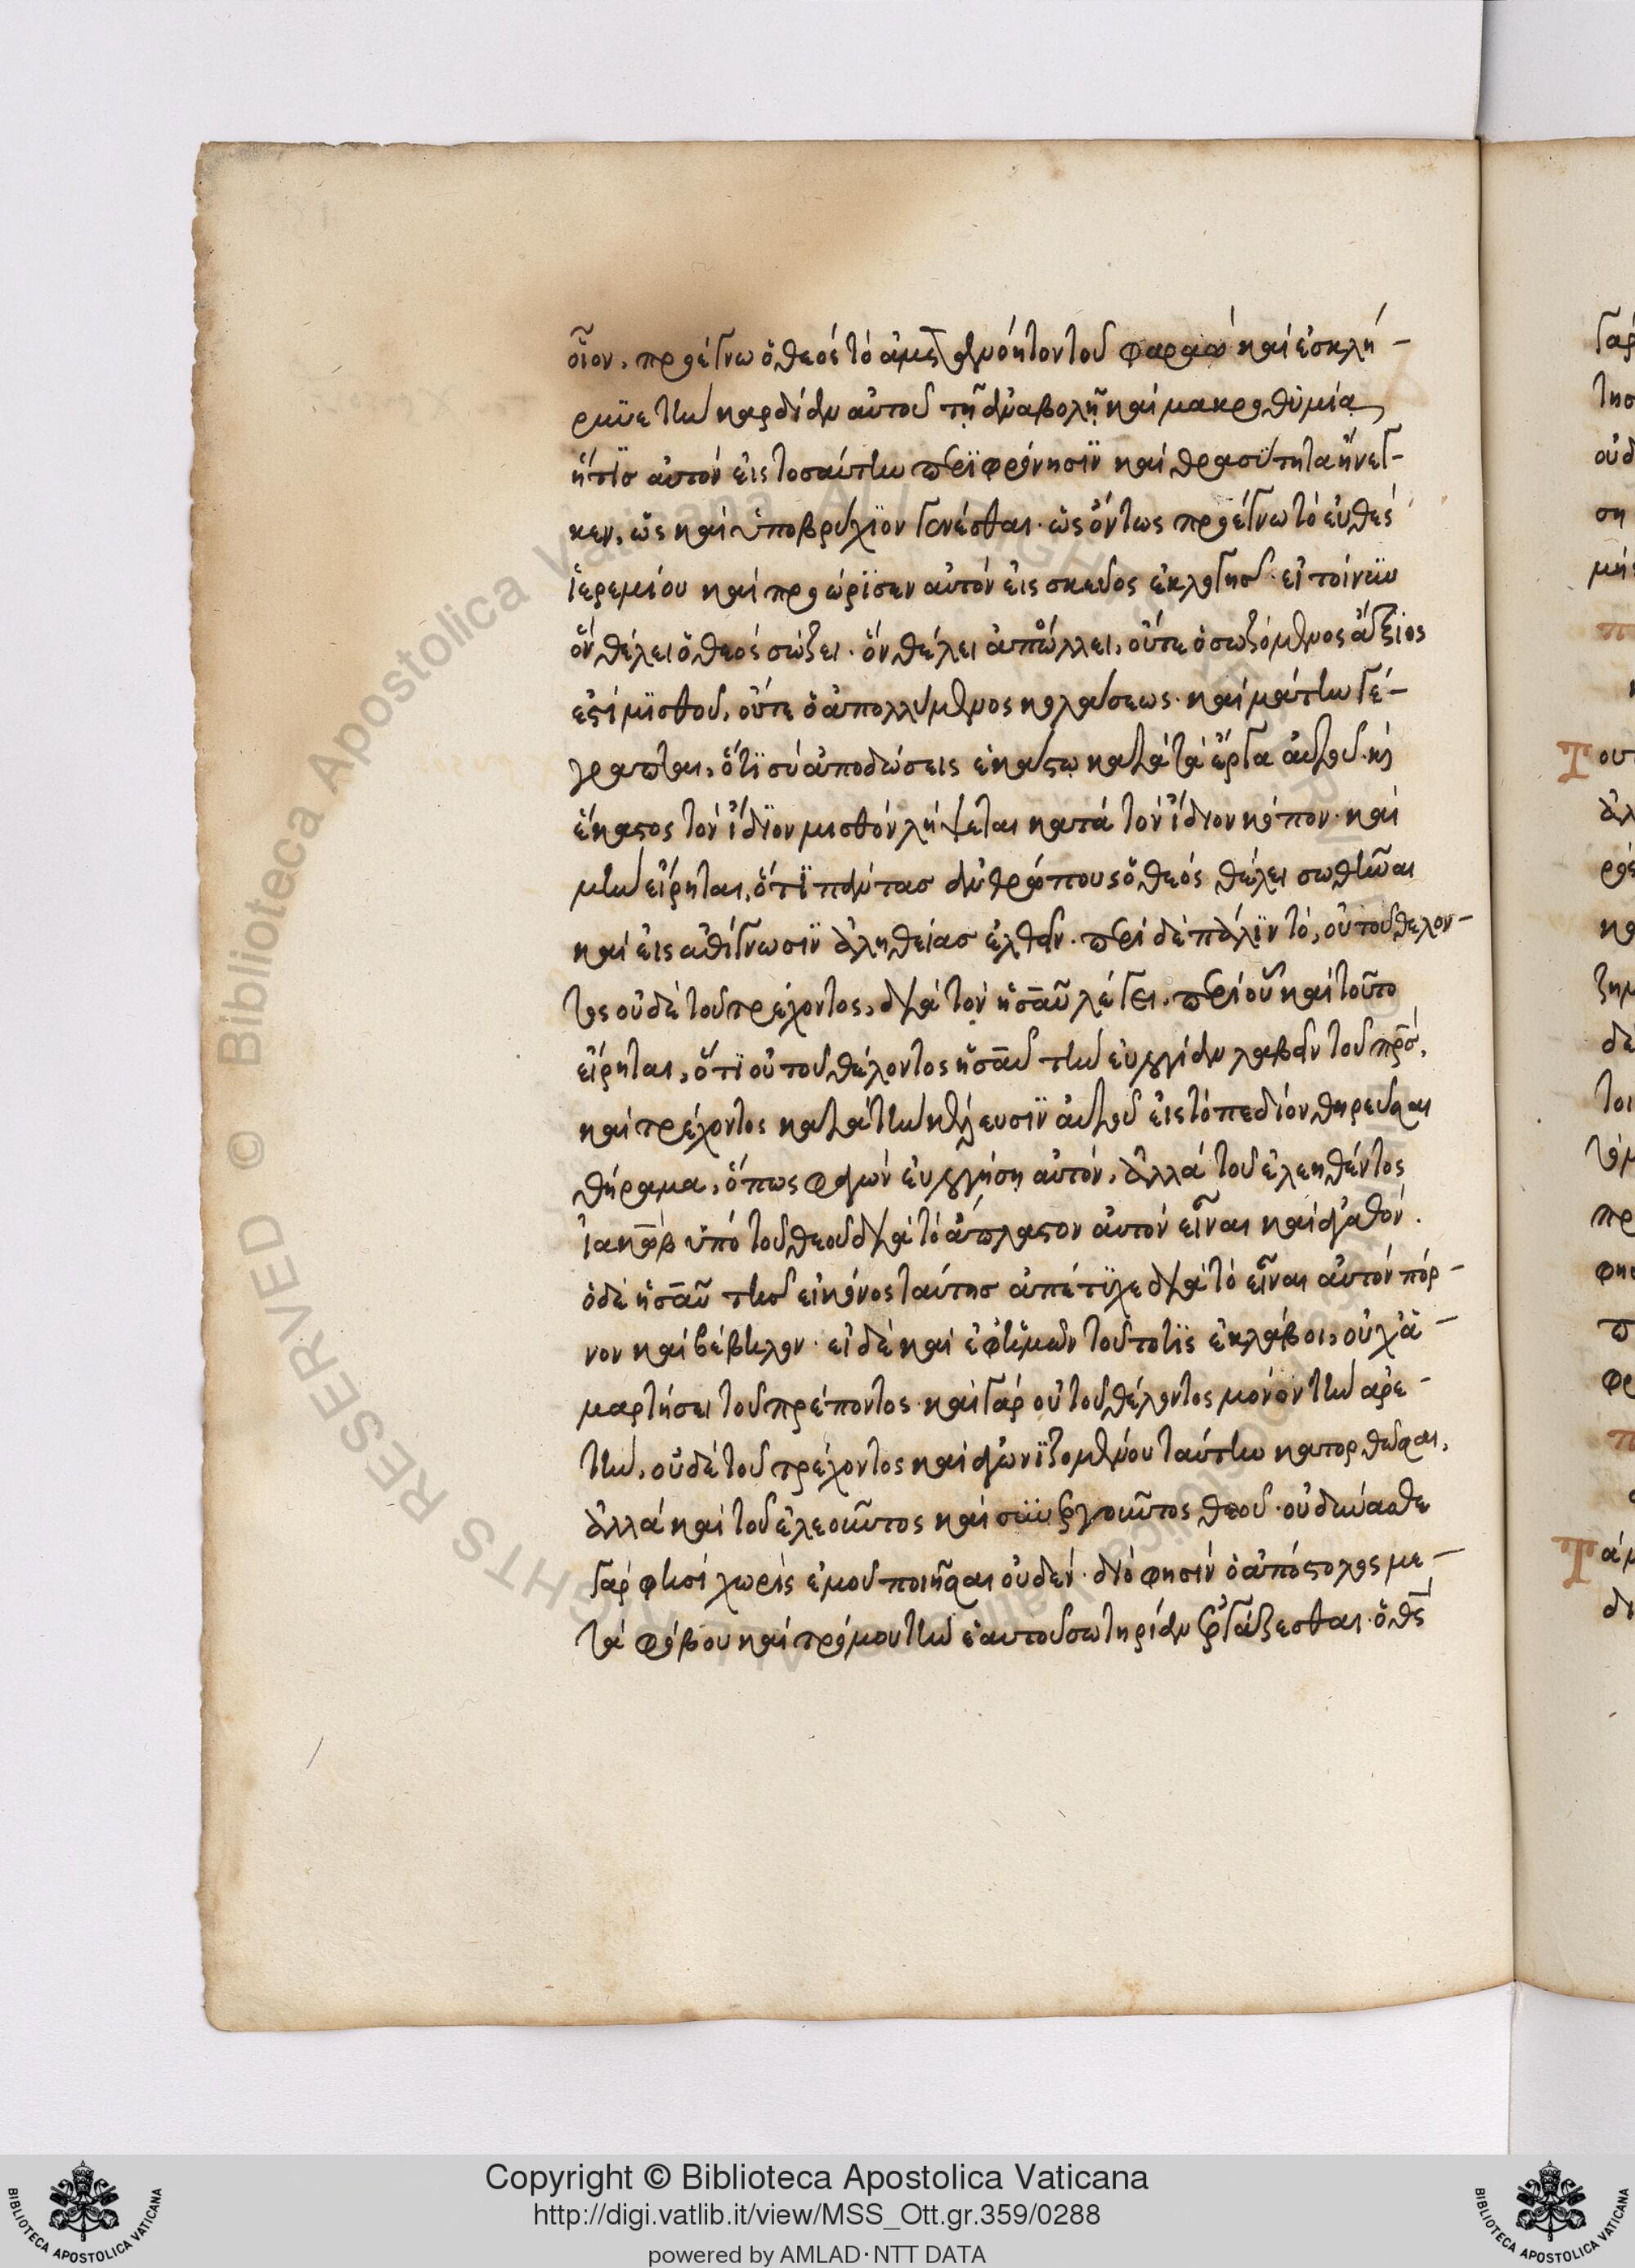 οἷον, προέγνω ὁ θεὸς τὸ ἀμετανόητον τοῦ φαραὼ καὶ ἐσκλή-
ρυνε τὴν καρδίαν αὐτοῦ τῇ ἀναβολῇ καὶ μακροθυμίᾳ
ἥτις αὐτὸν εἰς τοσαύτην περιφρόνησιν καὶ θρασύτητα ἤνεγ-
κεν, ὡς καὶ ὑποβρύχιον γενέσθαι· ὡς ὄντως προέγνω τὸ εὐθὲς
ἱερεμίου καὶ προώρισεν αὐτὸν εἰς σκεῦος ἐκλογῆς· εἰ τοίνυν
ὃν θέλει ὁ θεὸς σώζει· ὃν θέλει ἀπώλλει, οὔτε ὁ σωζόμενος ἄξιος
ἐστὶ μισθοῦ, οὔτε ὁ ἀπολλύμενος κολάσεως· καὶ μάτην γέ-
γραπται, ὅτι σὺ ἀποδώσεις ἑκάστῳ κατὰ τὰ ἔργα αὐτοῦ· κὶ
ἕκαστος τὸν ἴδιον μισθὸν λήψεται κατὰ τὸν ἴδιον κόπον· καὶ
μὴν εἴρηται, ὅτι πάντας ἀνθρώπους ὁ θεὸς θέλει σωθῆναι
καὶ εἰς ἐπίγνωσιν ἀληθείας ἐλθεῖν· περὶ δὲ πάλιν τὸ, οὐ τοῦ θέλον-
τος οὐδὲ τοῦ τρέχοντος, διὰ τὸν ἡσαῦ λέγει· περὶ οὗ καὶ τοῦτο
εἴρηται, ὅτι οὐ τοῦ θέλοντος ἡσαῦ τὴν εὐλογίαν λαβεῖν τοῦ πρσ,
καὶ τρέχοντος κατὰ τὴν κέλευσιν αὐτοῦ εἰς τὸ πεδίον θηρεῦσαι
θήραμα, ὅπως φαγὼν εὐλογήσῃ αὐτόν, ἀλλὰ τοῦ ἐλεηθέντος
ἰακὼβ ὑπὸ τοῦ θεοῦ διὰ τὸ ἄπλαστον αὐτὸν εἶναι καὶ ἀγαθόν.
ὁ δὲ ἡσαῦ τῆς εἰκόνος ταύτης ἀπέτυχε διὰ τὸ εἶναι αὐτὸν πόρ-
νον καὶ βέβηλον· εἰ δὲ καὶ ἐφ' ἡμῶν τοῦτο τὶς ἐκλάβοι, οὐχ ἁ-
μαρτήσει τοῦ πρέποντος· καὶ γὰρ οὐ τοῦ θέλοντος μόνον τὴν ἀρε-
τὴν, οὐδὲ τοῦ τρέχοντος καὶ ἀγωνιζομένου ταύτην κατορθῶσαι,
ἀλλὰ καὶ τοῦ ἐλεοῦντος καὶ συνεργοῦντος θεοῦ· οὐ δύνασθε
γὰρ φησὶ χωρὶς ἐμοῦ ποιῆσαι οὐδέν· διό φησιν ὁ ἀπόστολος με-
τὰ φόβου καὶ τρόμου τὴν ἑαυτοῦ σωτηρίαν ἐργάζεσθαι· ὁ θς